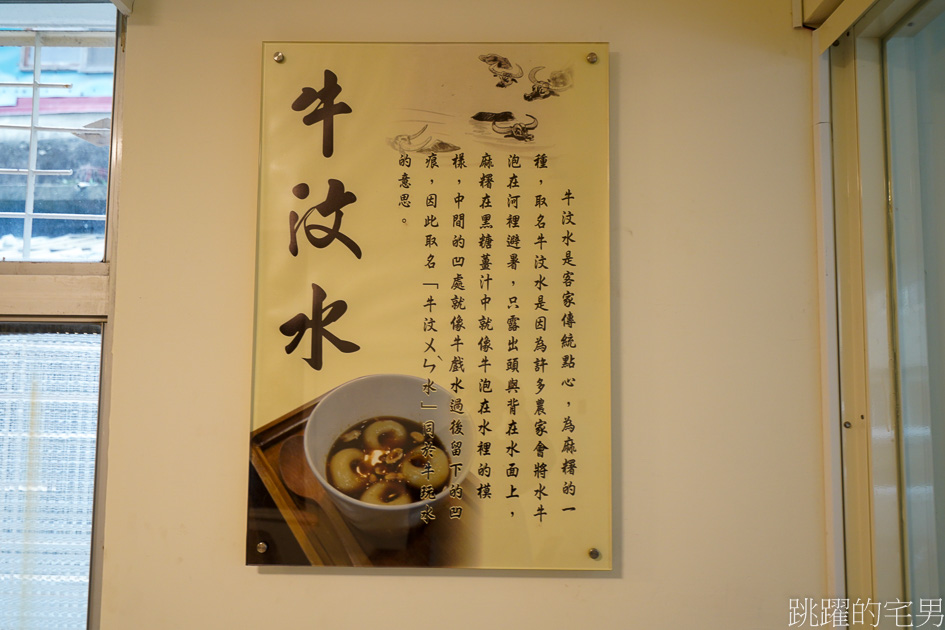 牛汶水
牛汶水是客家傳統點心，為麻糬的一
種，取名牛汶水是因為許多農家會將水牛
泡在河裡避暑，只露出頭與背在水面上，
麻糬在黑糖薑汁中就像牛泡在水裡的模
樣，中間的凹處就像牛戲水過後留下的凹
痕，因此取名「牛汶ㄨㄣˋ水」同於牛玩水
的意思。
跳躍的宅男